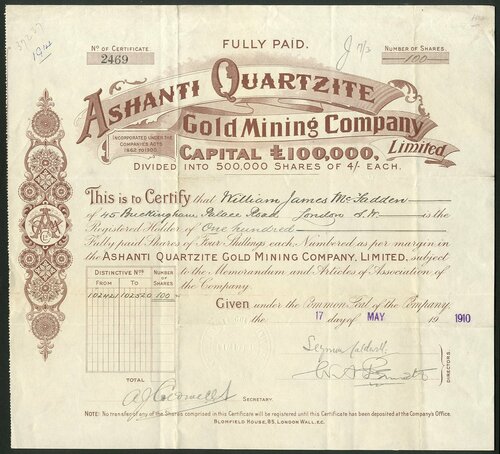 FULLY PAID.
Nº OF CERTIFICATE
2469
NUMBER OF SHARES.
100
ASHANTI QUARTZITE
Gold Mining Company
Limited
INCORPORATED UNDER THE
COMPANIES ACTS
1862 TO 1900.
CAPITAL £100,000,
DIVIDED INTO 500,000 SHARES OF 4/- EACH.
This is to Certify that William James McFadden
of 45 Buckingham Palace Road London S.W. is the
Registered Holder of One hundred
Fully paid Shares of Four Shillings each, Numbered as per margin in
the ASHANTI QUARTZITE GOLD MINING COMPANY, LIMITED, subject
to the Memorandum and Articles of Association of
the Company.
DISTINCTIVE Nos
NUMBER OF SHARES
FROM TO
102421 102520 100
Given under the Common Seal of the Company,
the 17 day of MAY 19 1910
DIRECTORS.
TOTAL
SECRETARY.
NOTE: No transfer of any of the Shares comprised in this Certificate will be registered until this Certificate has been deposited at the Company's Office.
BLOMFIELD HOUSE, 85, LONDON WALL, E.C.